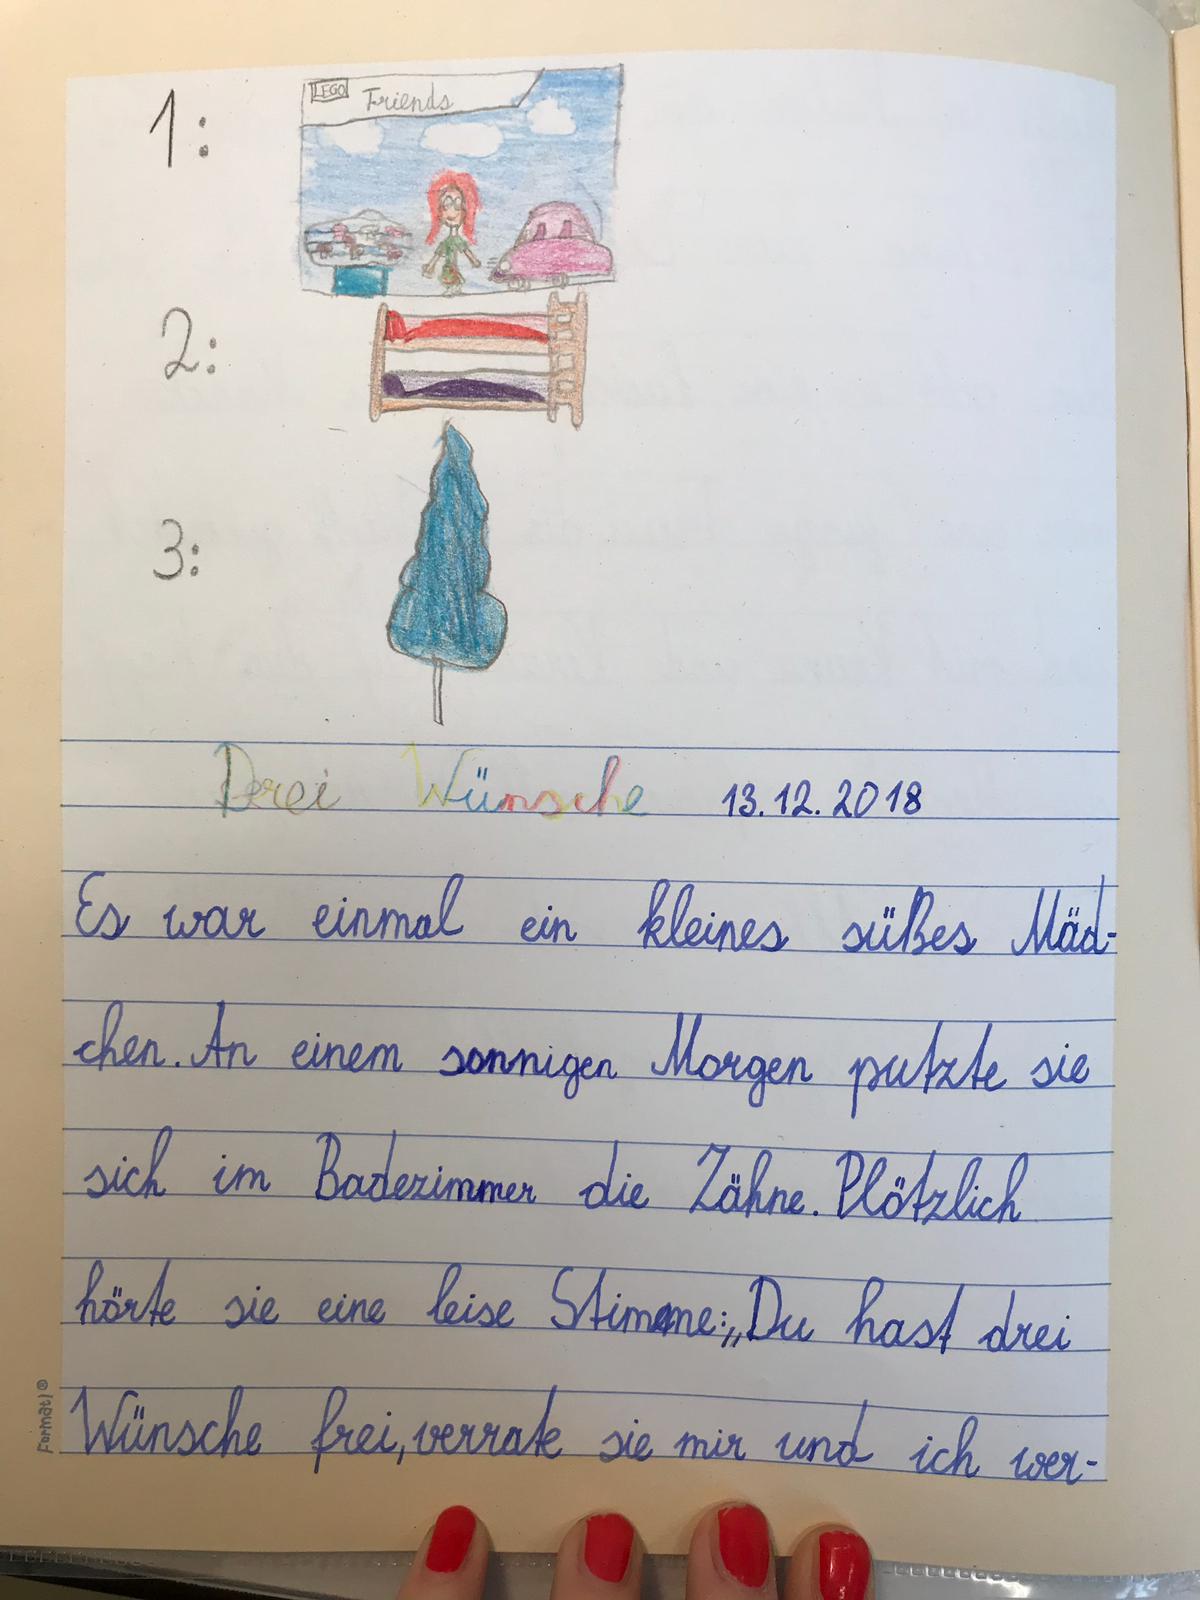 1:
LEGO Friends
2:
3:
Drei Wünsche 13.12.2018
Es war einmal ein kleines süßes Mäd-
chen. An einem sonnigen Morgen putzte sie
sich im Badezimmer die Zähne. Plötzlich
hörte sie eine leise Stimme: „Du hast drei
Wünsche frei, verrate sie mir und ich wer-
Formati®